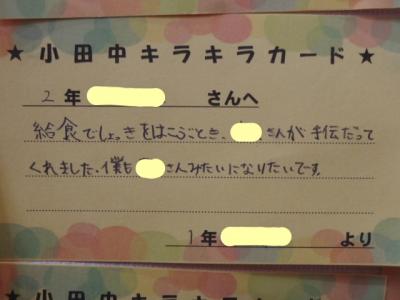 ★小田中キラキラカード★
2年 さんへ
給食でしょっきをはこぶとき、 さんが手伝だって
くれました。僕も さんみたいになりたいです。
1年 より
★小田中キラキラカード★